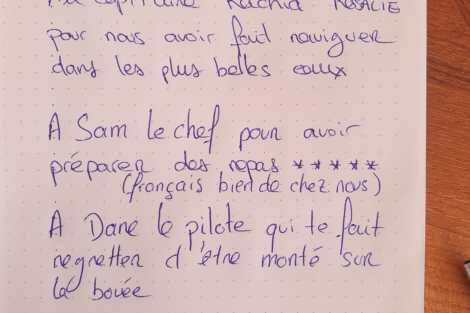 capitaine Rachid ROSALIE
pour nous avoir fait naviguer
dans les plus belles eaux
A Sam le chef pour avoir
préparer des repas *****
(français bien de chez nous)
A Dane le pilote qui te fait
regretter d'être monté sur
la bouée